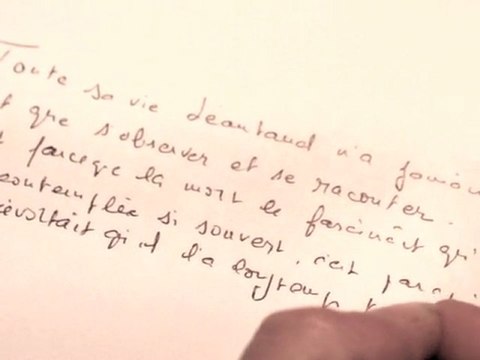 Toute sa vie Léautaud n'a jamais
que s'observer et se raconter.
parce que la mort le fascinait qu'
contemplée si souvent, c'est parce
qu'il l'a longtemps